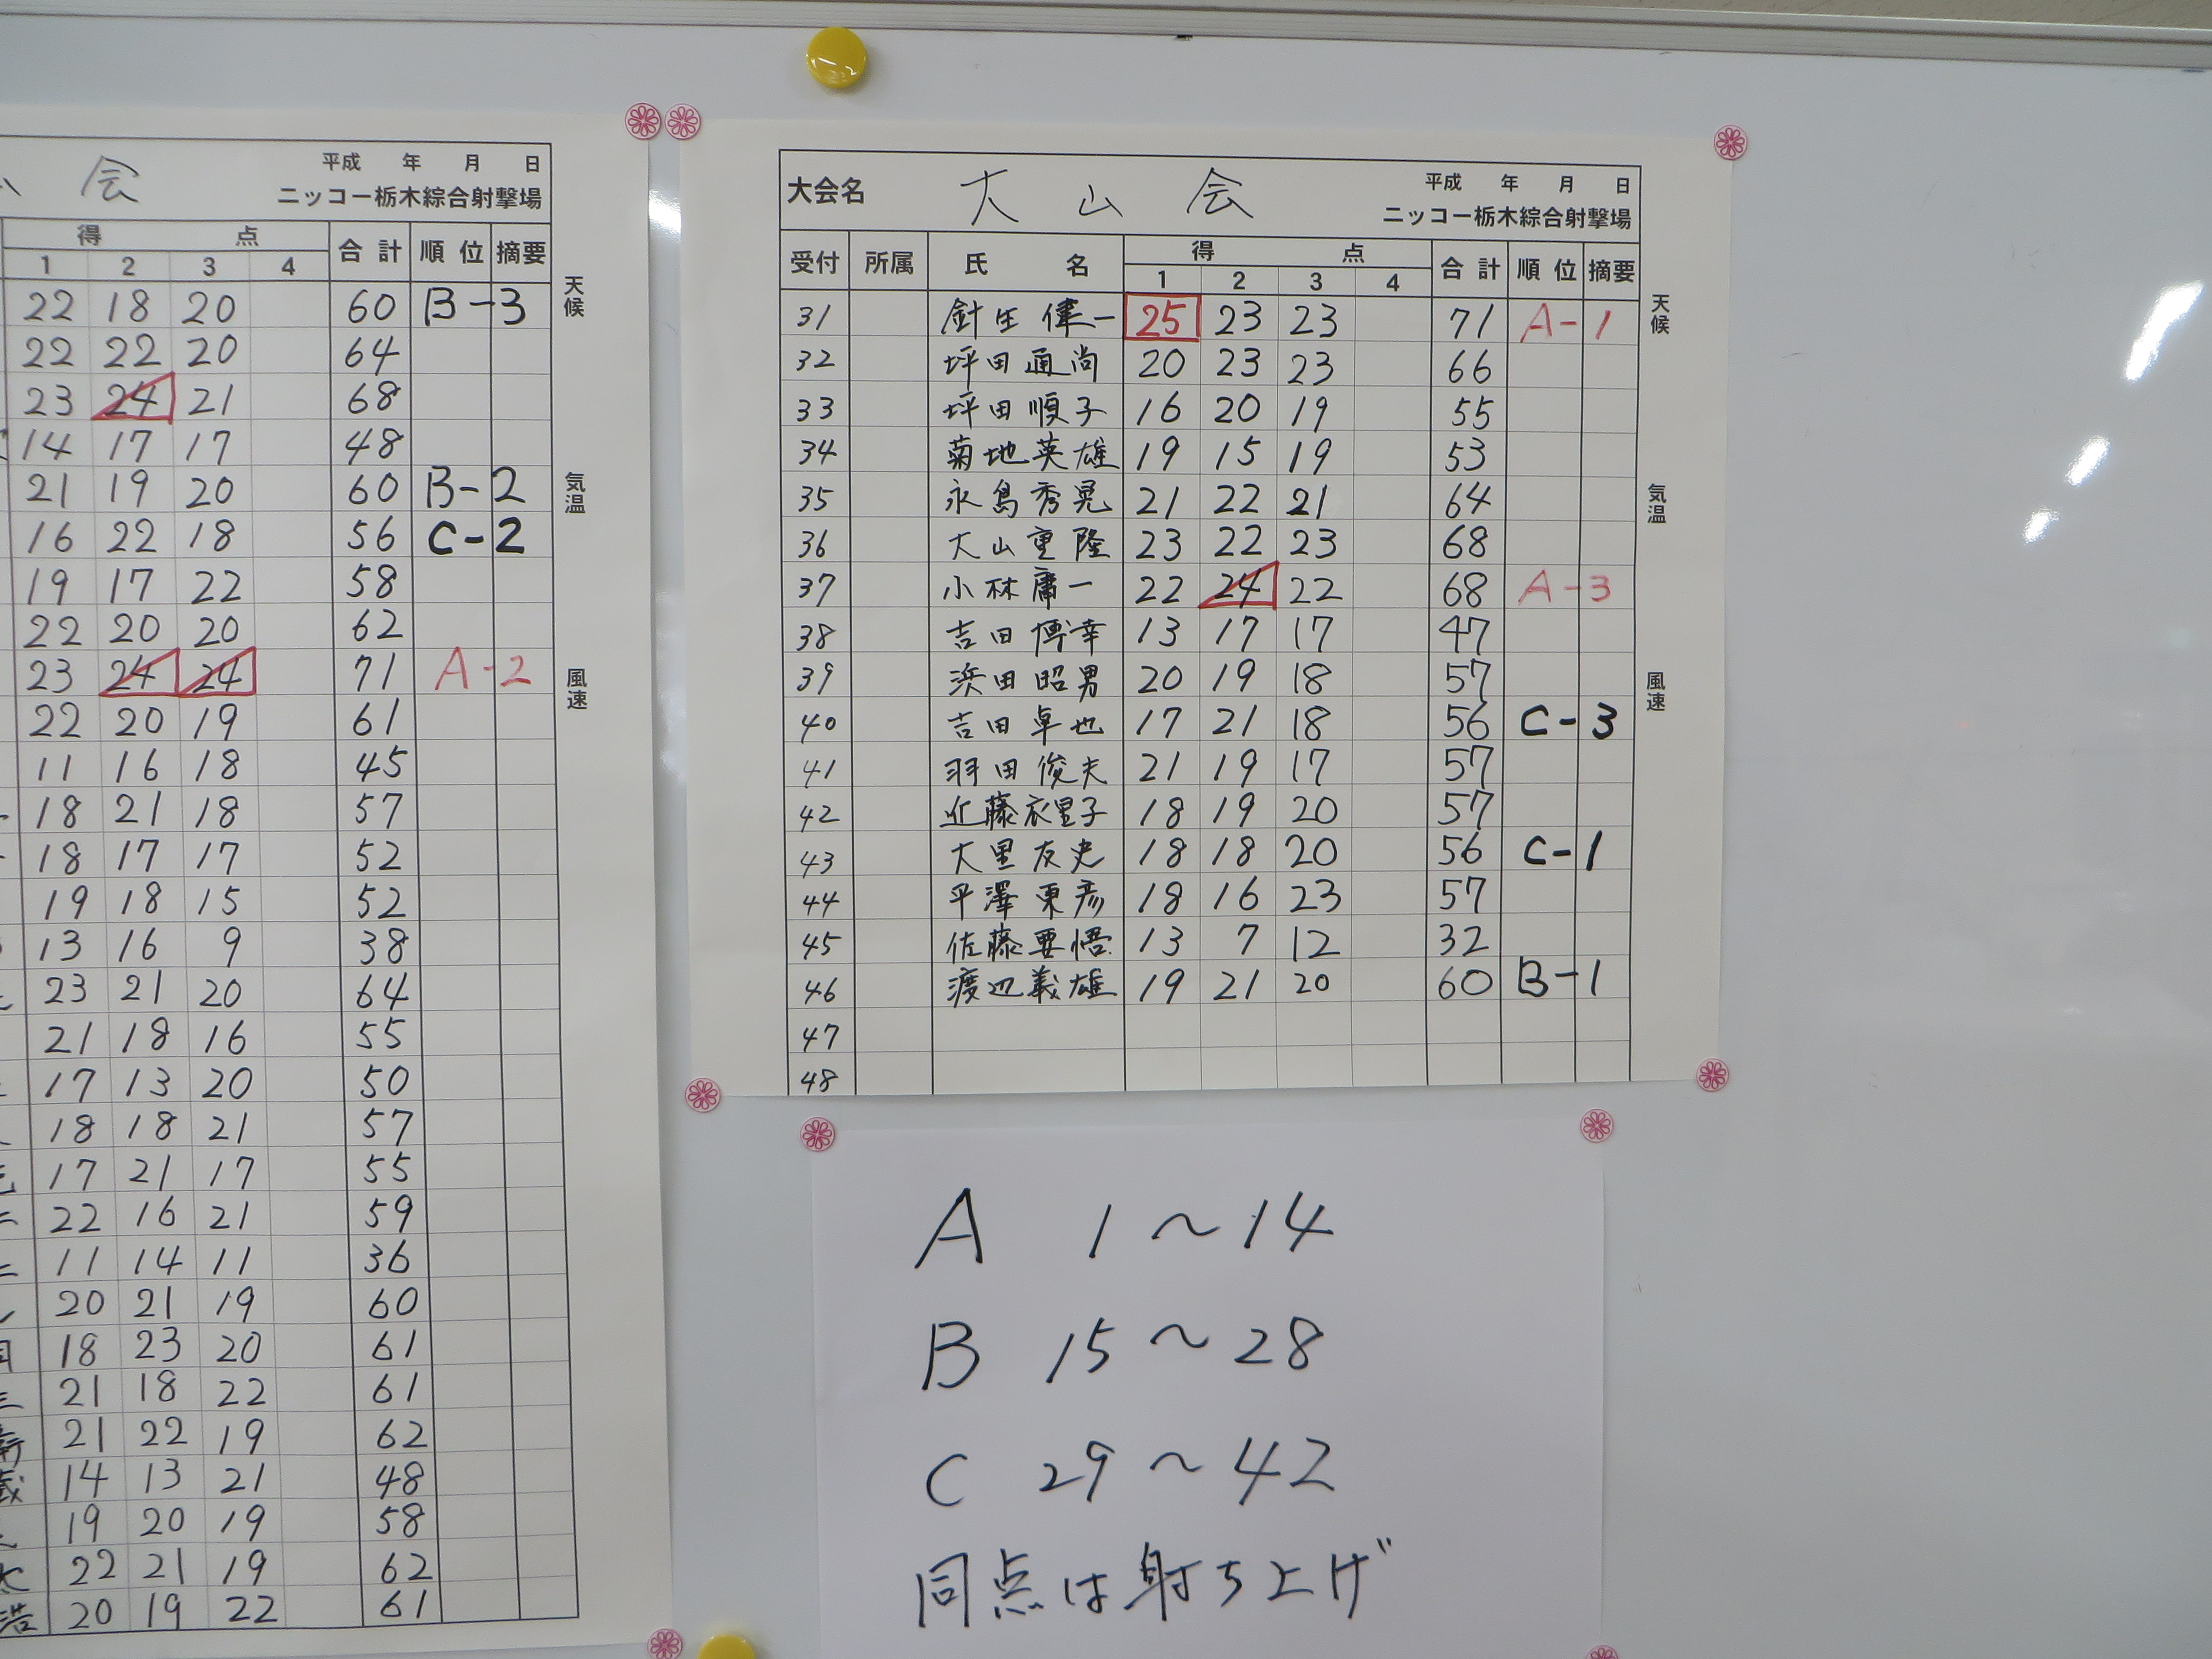 会
平成 年 月 日
ニッコー栃木綜合射撃場
得 点 合計 順位 摘要
1 2 3 4
22 18 20 60 B-3
22 22 20 64
23 24 21 68
14 17 17 48
21 19 20 60 B-2
16 22 18 56 C-2
19 17 22 58
22 20 20 62
23 24 24 71 A-2
22 20 19 61
11 16 18 45
18 21 18 57
18 17 17 52
19 18 15 52
13 16 9 38
23 21 20 64
21 18 16 55
17 13 20 50
18 18 21 57
17 21 17 55
22 16 21 59
11 14 11 36
20 21 19 60
18 23 20 61
三 21 18 22 61
21 22 19 62
蔵 14 13 21 48
19 20 19 58
太 22 21 19 62
浩 20 19 22 61
天候
気温
風速
大会名 大山会
平成 年 月 日
ニッコー栃木綜合射撃場
受付 所属 氏名 得 点 合計 順位 摘要
1 2 3 4
31 針生偉一 25 23 23 71 A-1
32 坪田通尚 20 23 23 66
33 坪田順子 16 20 19 55
34 菊地英雄 19 15 19 53
35 永島秀晃 21 22 21 64
36 大山重隆 23 22 23 68
37 小林庸一 22 24 22 68 A-3
38 吉田博幸 13 17 17 47
39 浜田昭男 20 19 18 57
40 吉田卓也 17 21 18 56 C-3
41 羽田俊夫 21 19 17 57
42 近藤衣里子 18 19 20 57
43 大里友史 18 18 20 56 C-1
44 平澤東彦 18 16 23 57
45 佐藤要悟 13 7 12 32
46 渡辺義雄 19 21 20 60 B-1
47
48
天候
気温
風速
A 1～14
B 15～28
C 29～42
同点は射ち上げ